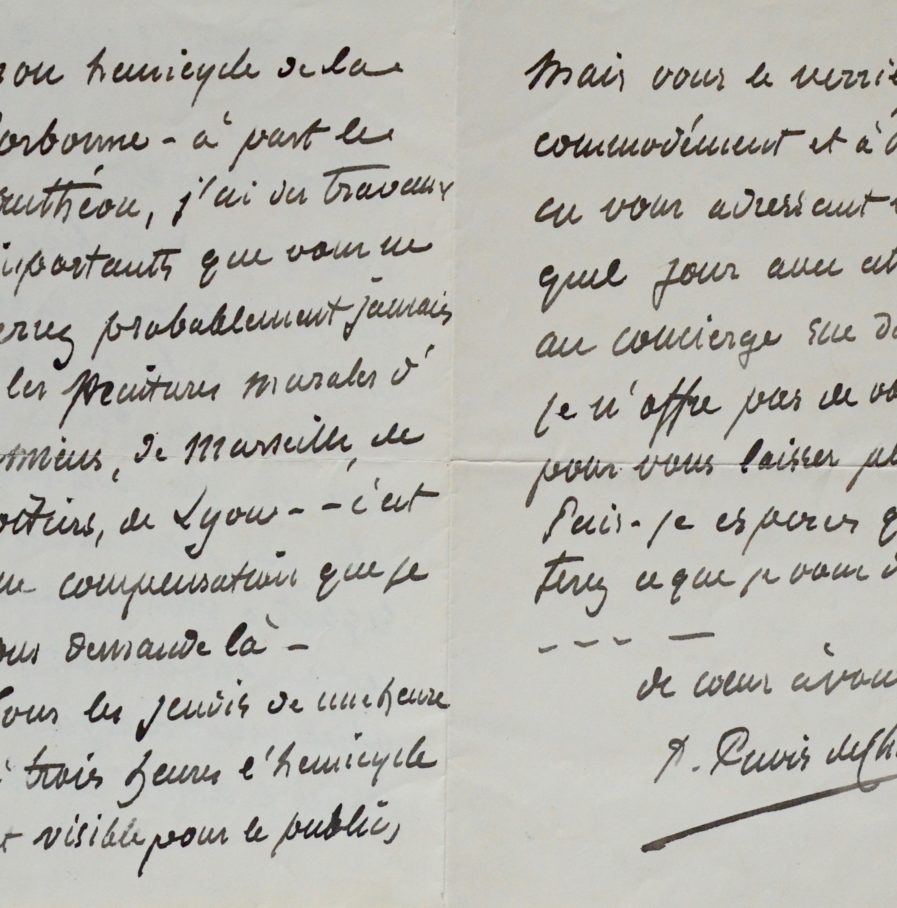 mon hemicycle de la
Sorbonne - à part le
Panthéon, j'ai des travaux
importants que vous ne
verrez probablement jamais
les Peintures murales d'
Amiens, de Marseille, de
Poitiers, de Lyon - - c'est
une compensation que je
vous demande là -
Tous les jeudis de une heure
à trois heures l'hemicycle
est visible pour le public,
Mais vous le verrie
commodément et à
en vous adressant
quel jour avec
au concierge rue
je n'offre pas de vo
pour vous laisser pl
Puis-je esperer q
terez ce que je vous d
- - - -
de cœur à vous
P. Puvis de Ch